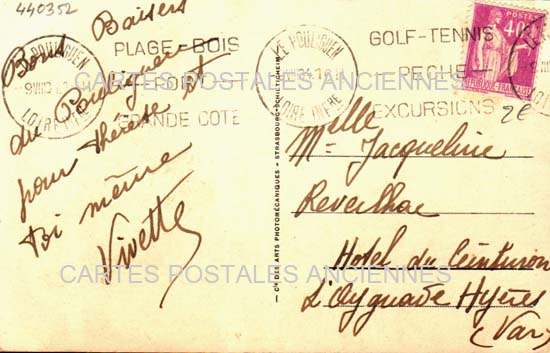 440352
Bons Baisers
du Pouliguen
pour Thérèse et
toi même
Vivette
LE POULIGUEN
LOIRE INFRE
PLAGE-BOIS
GRANDE COTE
LE POULIGUEN
LOIRE INFRE
GOLF-TENNIS
PECHE
EXCURSIONS
POSTES
40c
REPUBLIQUE FRANCAISE
2€
Melle
Jacqueline
Reveilhac
Hotel du Ceinturon
L'Ayguade Hyères
(Var)
CIE DES ARTS PHOTOMÉCANIQUES - STRASBOURG-SCHILTIGHEIM
CARTES POSTALES ANCIENNES
CARTES POSTALES ANCIENNES